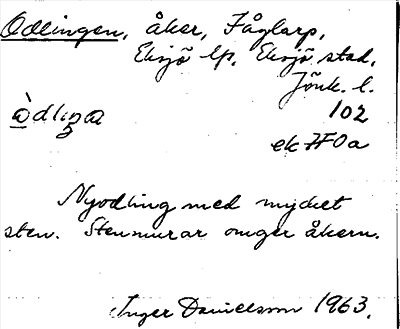 Odlingen, åker, Fåglarp,
Eksjö lfs, Eksjö stad,
Jönk. l.
102
ek 7F0a
Nyodling med mycket
sten. Stenmurar omger åkern.
Inger Danielsson 1963.